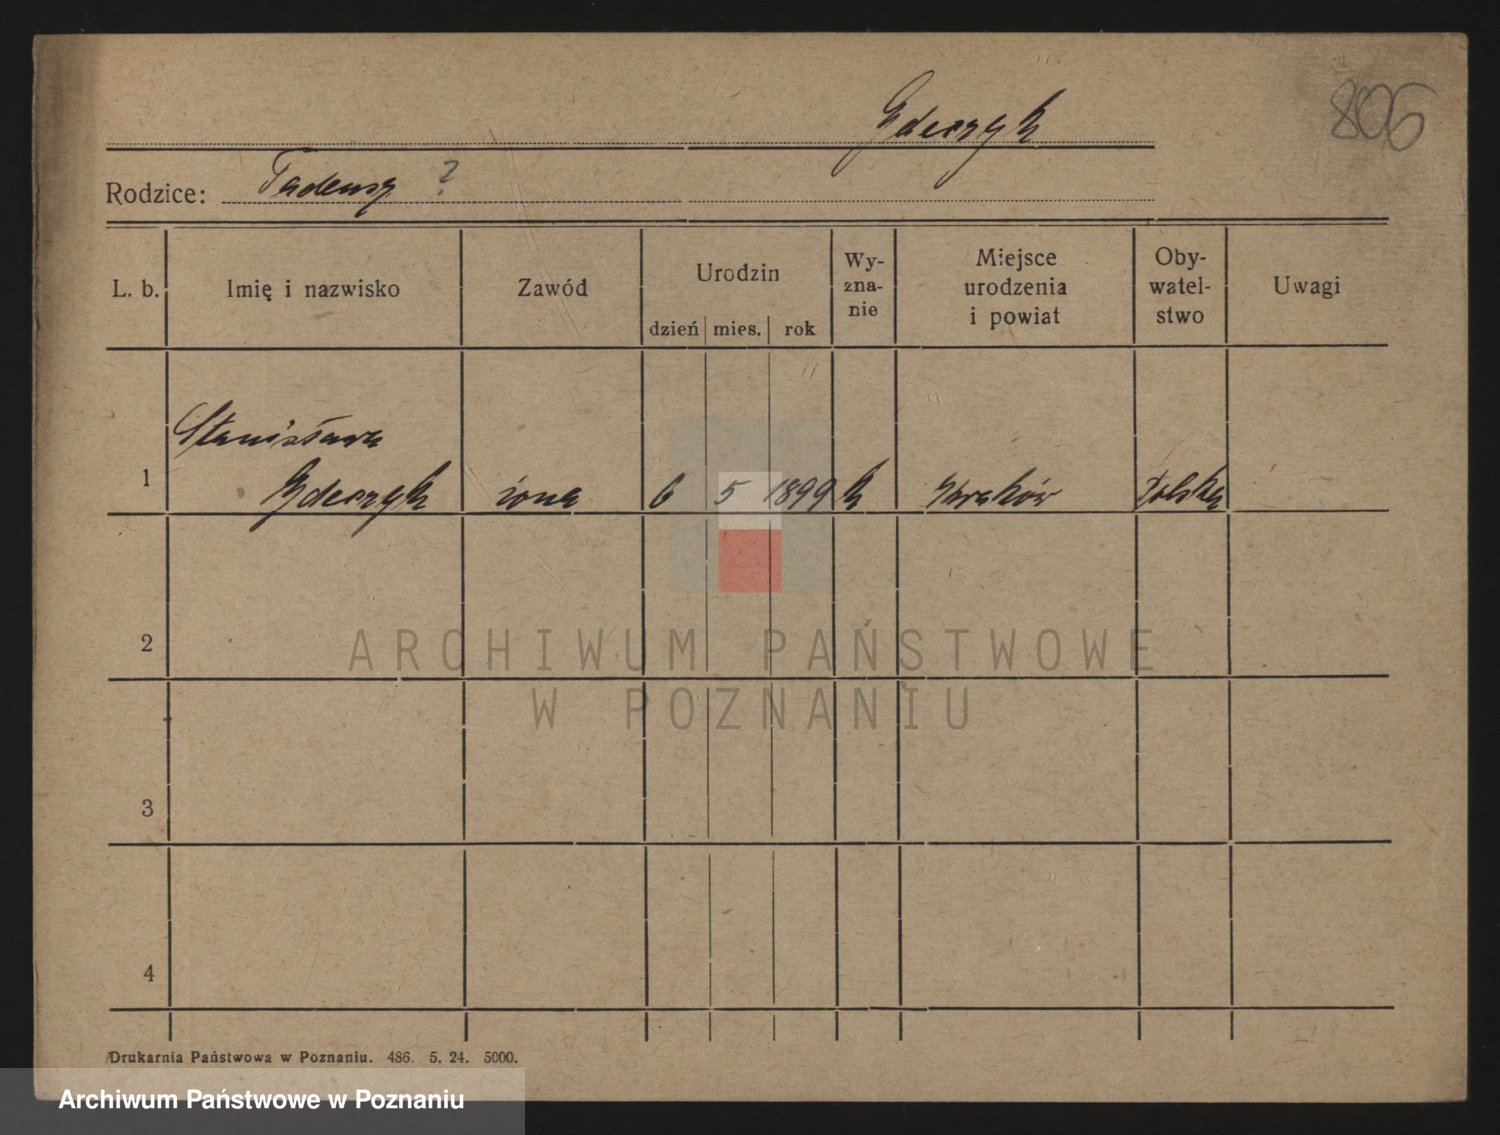 Gdeczyk
806
Rodzice: Tadeusz ?
L. b. Imię i nazwisko Zawód Urodzin dzień mies. rok Wy-zna-nie Miejsce urodzenia i powiat Oby-watel-stwo Uwagi
Stanisława
1 Gdeczyk żona 6 5 1899 k Kraków Polska
2
ARCHIWUM PAŃSTWOWE
W POZNANIU
3
4
Drukarnia Państwowa w Poznaniu. 486. 5. 24. 5000.
Archiwum Państwowe w Poznaniu